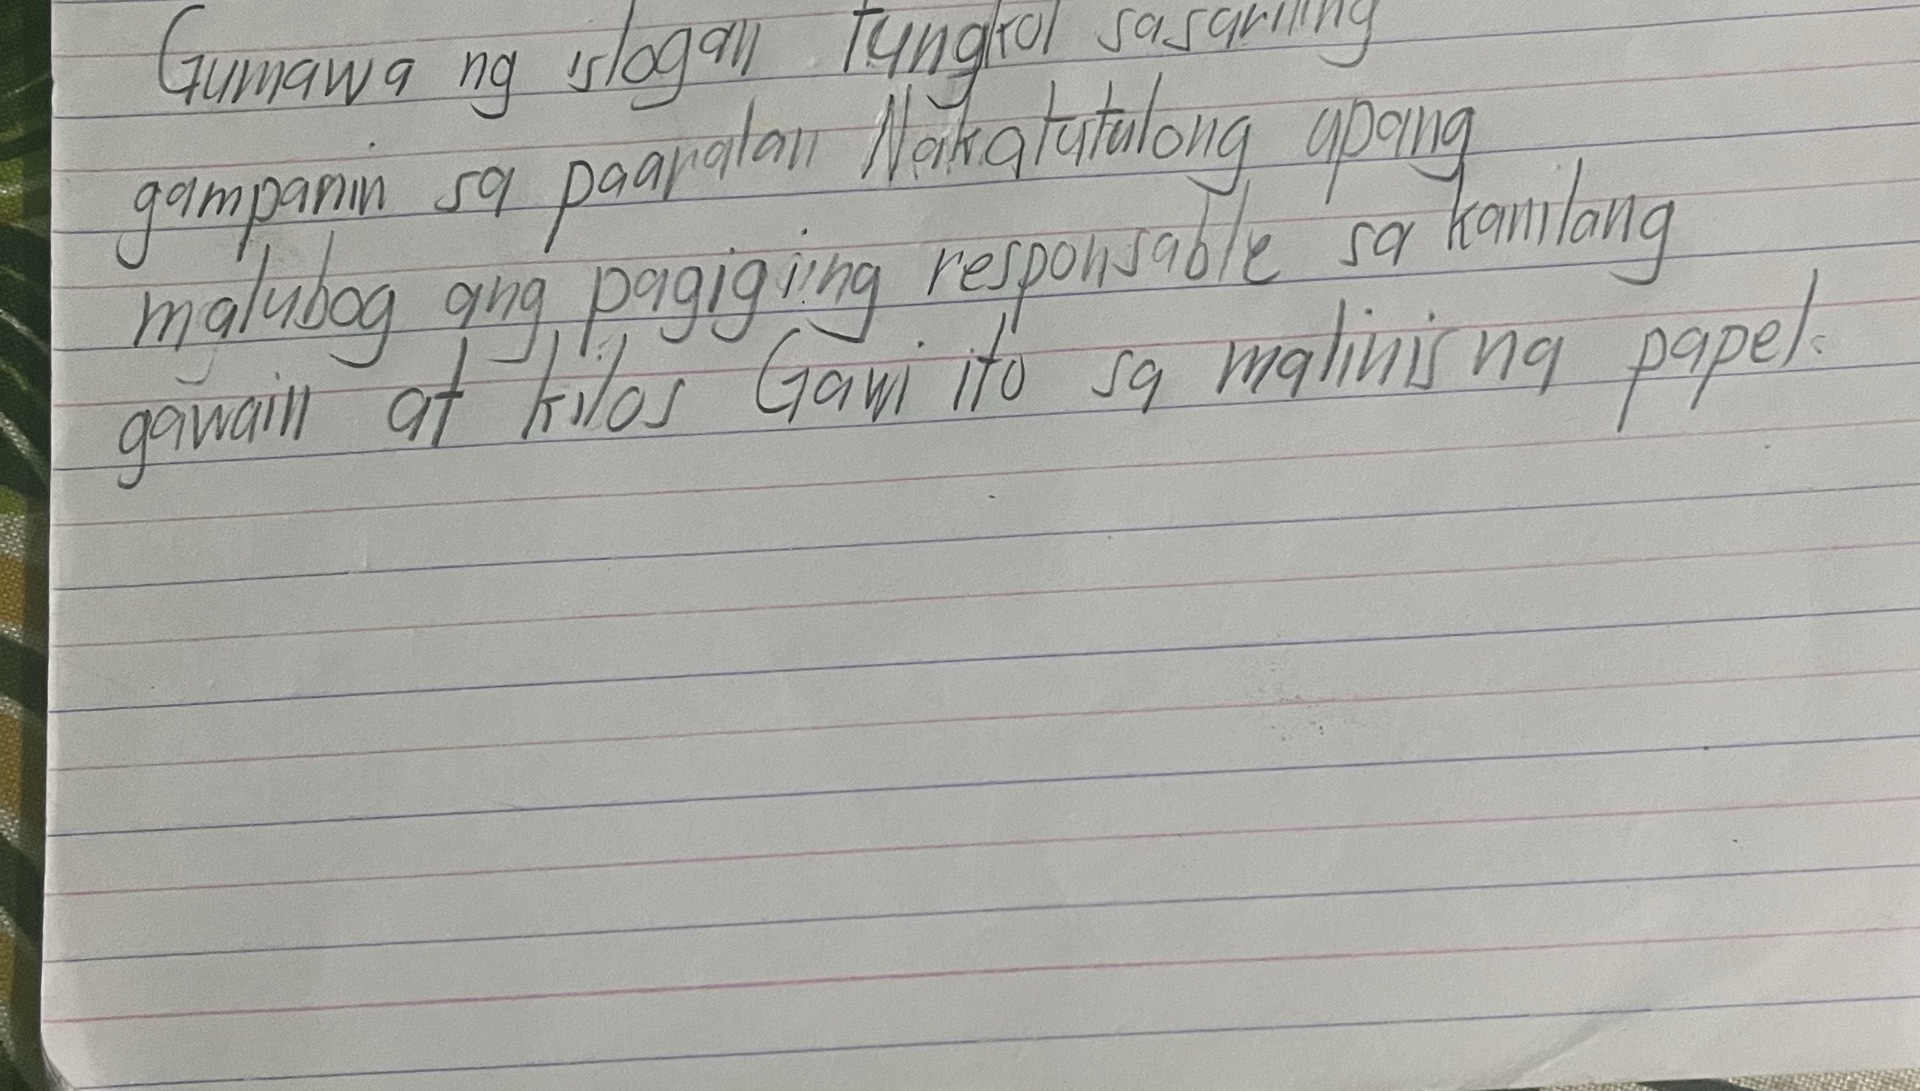 Gumawa ng islogan tungkol sa sariling
gampanin sa paaralan Nakatutulong upang
malubog ang pagigiing responsable sa kanilang
gawain at kilos Gawi ito sa malinis na papel.